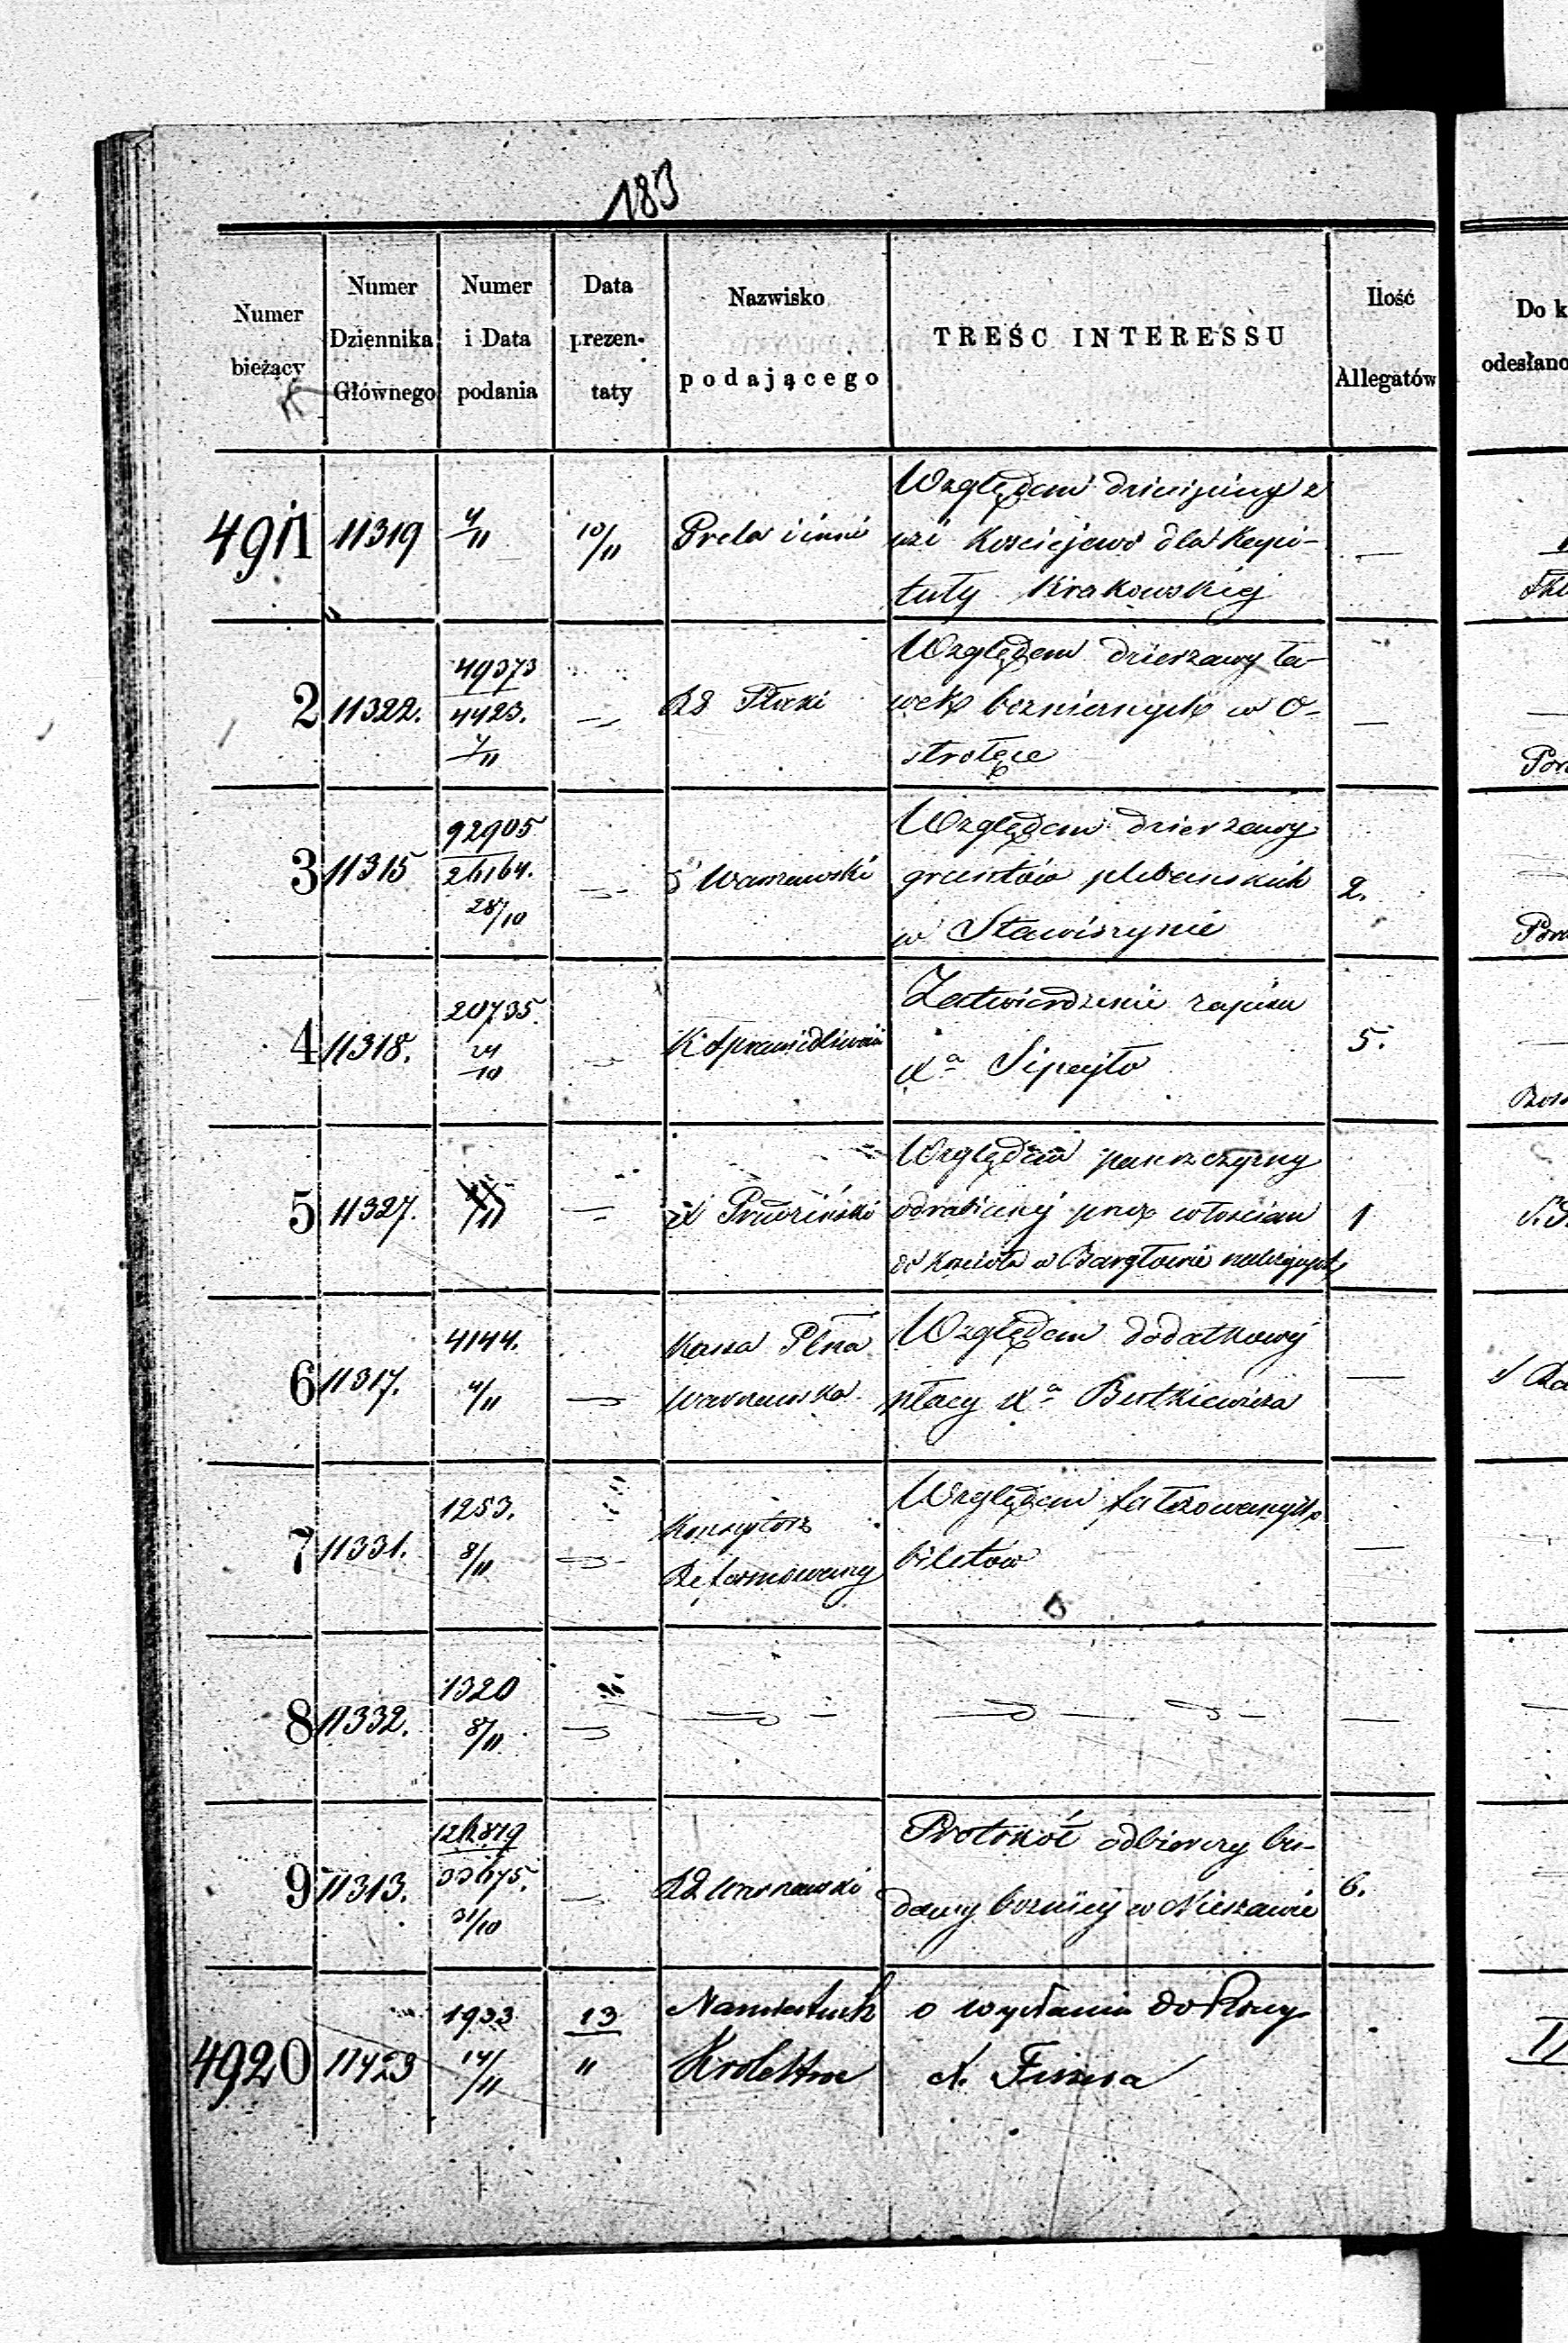 183
Numer bieżący
Numer Dziennika Głównego
Numer i Data podania
Data prezen- taty
Nazwisko podającego
TREŚC INTERESSU
Ilość Allegatów
Do k
odesłano
4911 11319 4/11 10/11 Prela i inni
Względem dziesięciny z
wsi Kosciejewo dla Kapi-
tuły Krakowskiej
2 11322. 49373 4423. 4/11 RG Płocki
Względem dzierzawy ła-
wek bożniczych w O-
strołęce
3 11315 92905 28/10 Warszawski 2.
Względem dzierzawy
gruntów plebańskich
w Stawiszynie
4 11318. 20735. 24/10 K Sprawiedliwości 5.
Zatwierdzenie zapisu
Xa Sipayło
5 11327. X 1
Względem panszczyzny
odrabianej przez włoscian
do kościoła w Bargłowie należących
6 11317. 4144. 4/11 Kassa Płna Warszawska
Względem dodatkowej
płacy Xa Butkiewicza
7 11331. 1253. 8/11 Konsystorz Reformowany
Względem fałszowanych
biletów
8 11332. 1320 8/11
9 11313. 31/10 RG Warszawski 6.
Protokół odbiorczy bu-
dowy bożnicy w Nieszawie
4920 11423 1933 14/11 13 " Namiestnik Królestwa
o wysłaniu do Rosyi
X. Fiszera